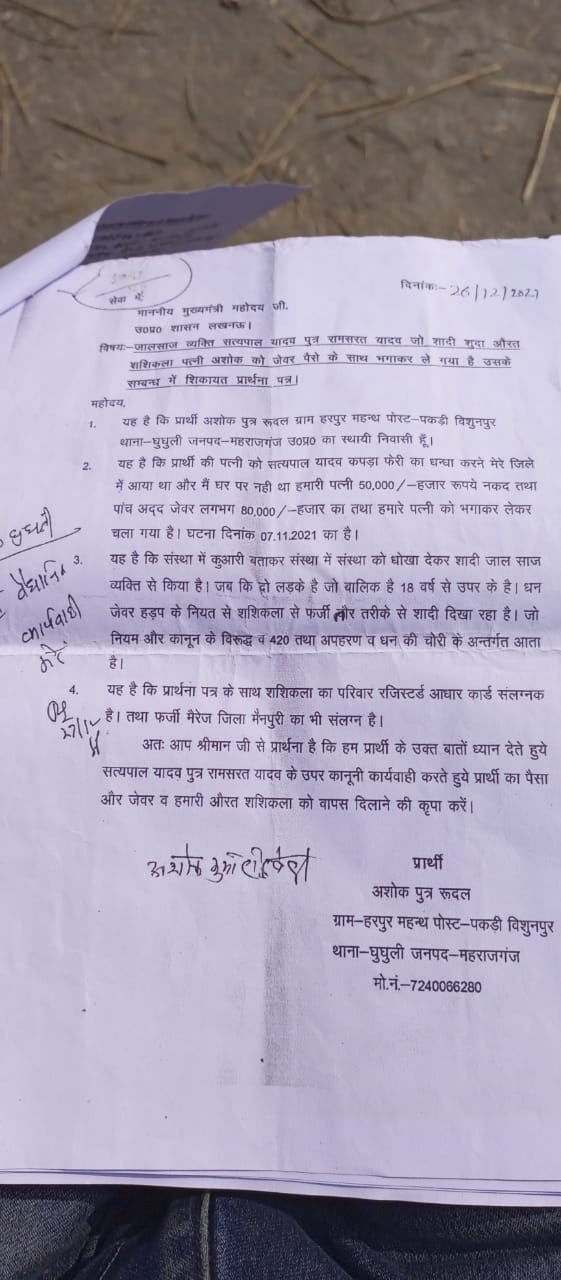 दिनांकः- 26/12/2021
सेवा में,
माननीय मुख्यमंत्री महोदय जी,
उ०प्र० शासन लखनऊ।
विषयः-जालसाज व्यक्ति सत्यपाल यादव पुत्र रामसरत यादव जो शादी शुदा औरत
शशिकला पत्नी अशोक को जेवर पैसे के साथ भगाकर ले गया है उसके
सम्बन्ध में शिकायत प्रार्थना पत्र।
महोदय,
1. यह है कि प्रार्थी अशोक पुत्र रूदल ग्राम हरपुर महन्थ पोस्ट-पकड़ी विशुनपुर
थाना-घुघुली जनपद-महराजगंज उ०प्र० का स्थायी निवासी हूँ।
2. यह है कि प्रार्थी की पत्नी को सत्यपाल यादव कपड़ा फेरी का धन्धा करने मेरे जिले
में आया था और मैं घर पर नही था हमारी पत्नी 50,000/-हजार रूपये नकद तथा
पांच अदद जेवर लगभग 80,000/-हजार का तथा हमारे पत्नी को भगाकर लेकर
चला गया है। घटना दिनांक 07.11.2021 का है।
3. यह है कि संस्था में कुआरी बताकर संस्था में संस्था को धोखा देकर शादी जाल साज
व्यक्ति से किया है। जब कि दो लड़के है जो बालिक है 18 वर्ष से उपर के है। धन
जेवर हड़प के नियत से शशिकला से फर्जी तौर तरीके से शादी दिखा रहा है। जो
नियम और कानून के विरूद्ध व 420 तथा अपहरण व धन की चोरी के अन्तर्गत आता
है।
घुघुली
वैधानिक
कार्यवाही
करें
4. यह है कि प्रार्थना पत्र के साथ शशिकला का परिवार रजिस्टर्ड आधार कार्ड संलग्नक
है। तथा फर्जी मैरेज जिला मैनपुरी का भी संलग्न है।
अतः आप श्रीमान जी से प्रार्थना है कि हम प्रार्थी के उक्त बातों ध्यान देते हुये
सत्यपाल यादव पुत्र रामसरत यादव के उपर कानूनी कार्यवाही करते हुये प्रार्थी का पैसा
और जेवर व हमारी औरत शशिकला को वापस दिलाने की कृपा करें।
प्रार्थी
अशोक पुत्र रूदल
ग्राम-हरपुर महन्थ पोस्ट-पकड़ी विशुनपुर
थाना-घुघुली जनपद-महराजगंज
मो.नं.-7240066280